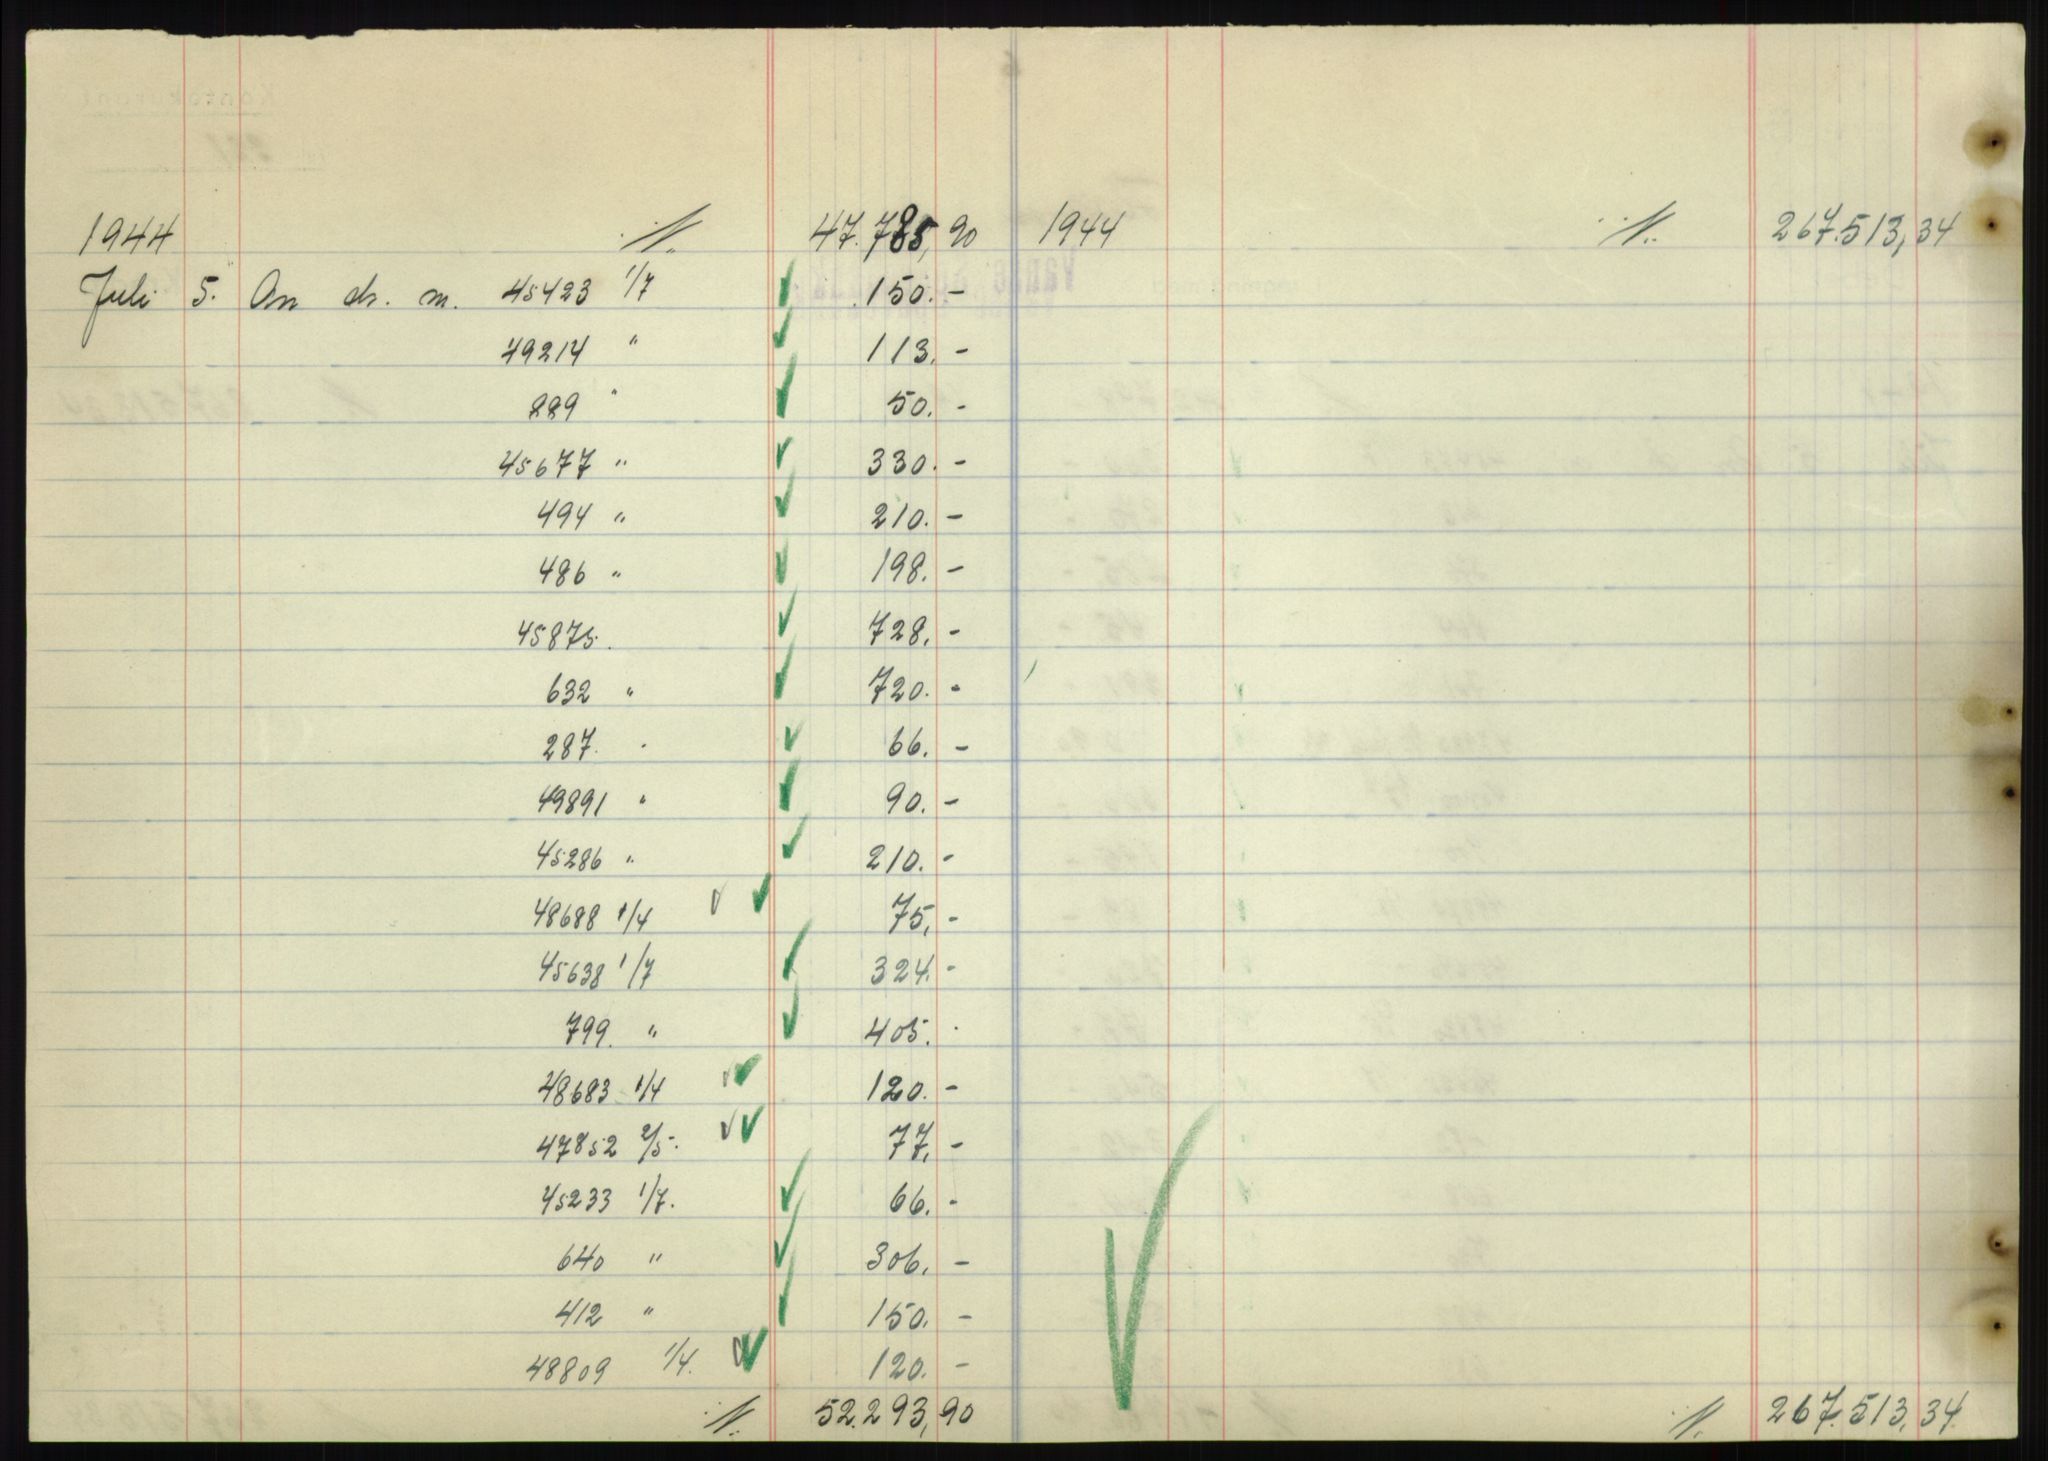 1944 ·/· 47.785,90 1944 ·/· 267.513,34
Juli 5. An ch. m. 45423 1/7 150.-
49214 " 113.-
889 " 50.-
45677 " 330.-
494 " 210.-
486 " 198.-
45875. 728.-
632 " 720.-
287. " 66.-
49891 " 90.-
45286 " 210.-
48688 1/4 75,-
45638 1/7 324.-
799. " 405.-
48683 1/4 120.-
47852 2/5. 77,-
45233 1/7. 66.-
640 " 306.-
412 " 150.-
48809 1/4. 120.-
·/· 52.293,90 ·/· 267.513,34